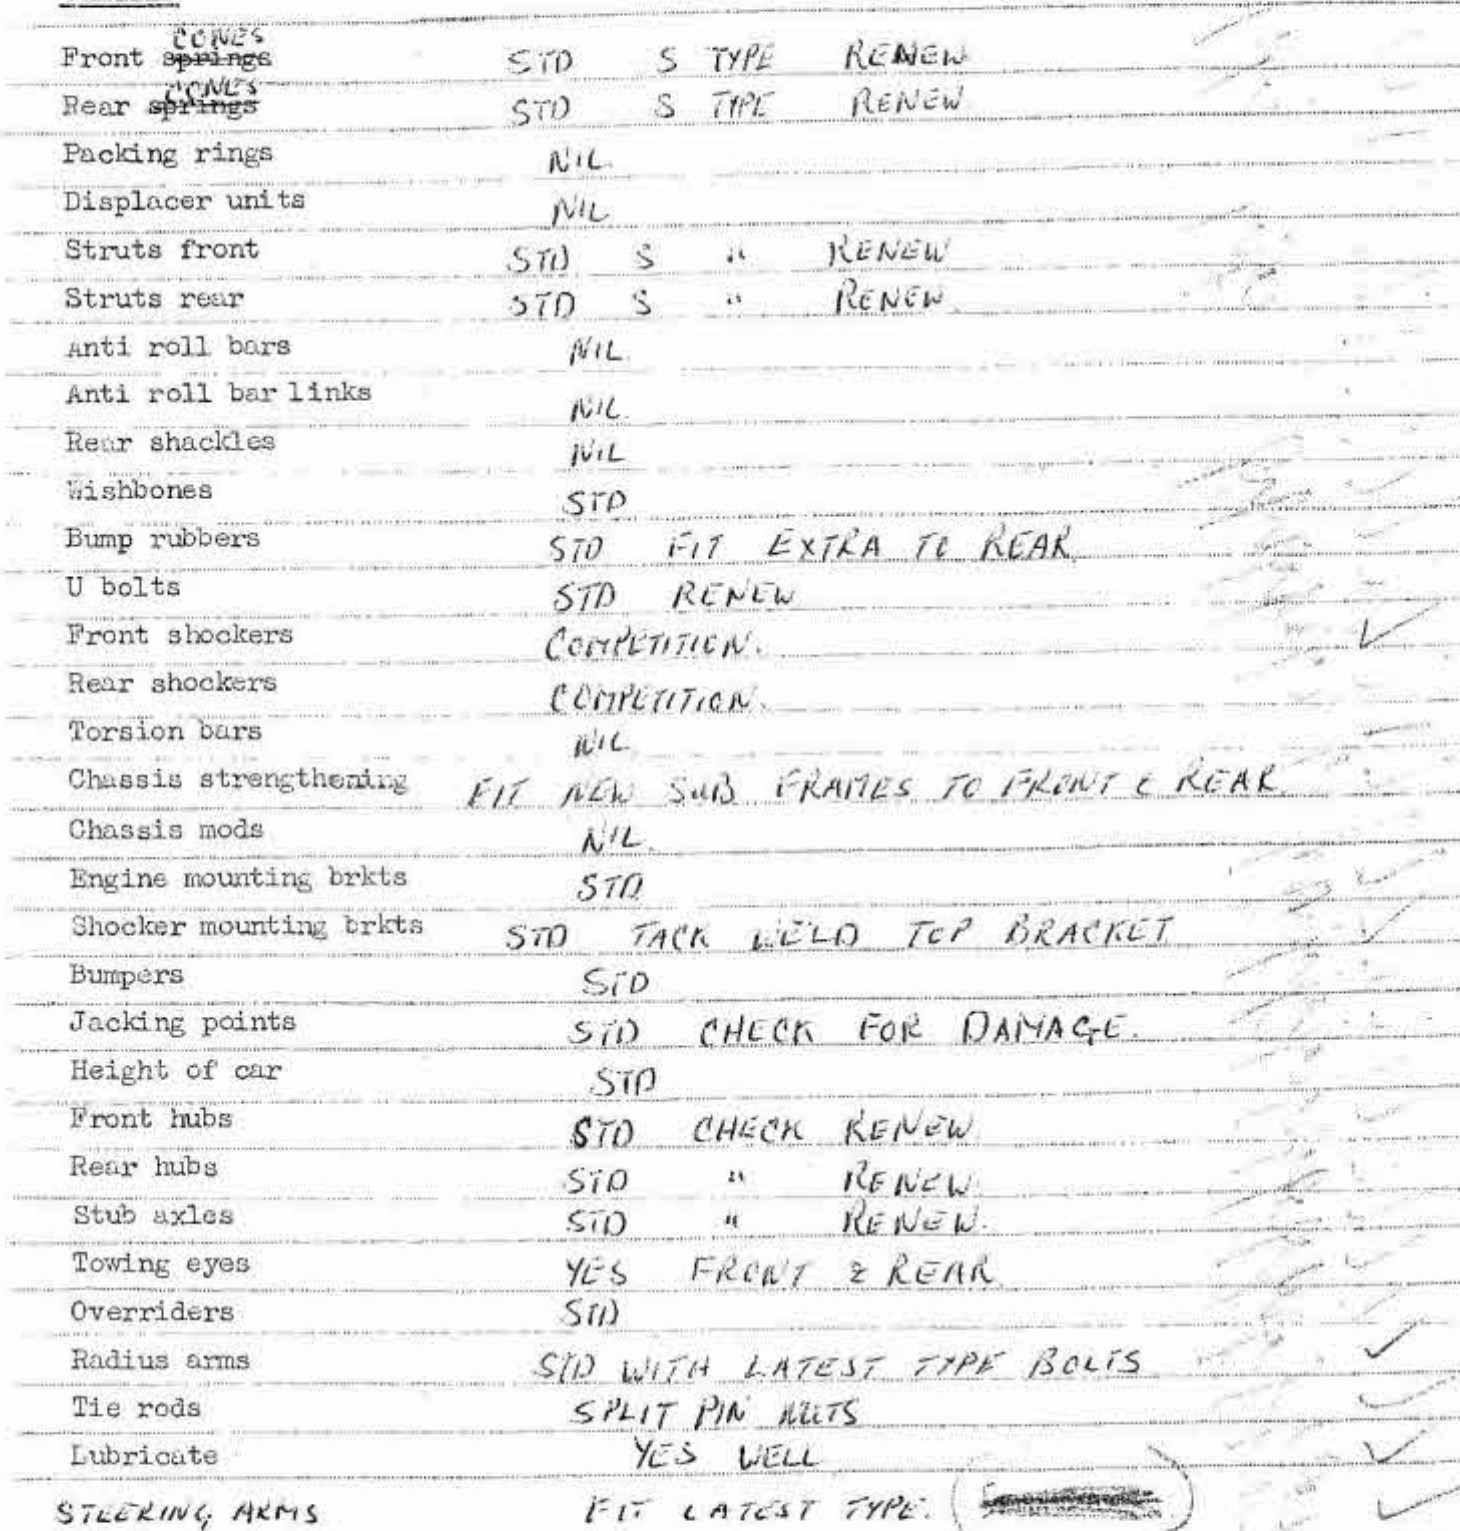 CONES
Front springs STD S TYPE RENEW
CONES
Rear springs STD S TYPE RENEW
Packing rings NIL.
Displacer units NIL
Struts front STD S " RENEW
Struts rear STD S " RENEW.
Anti roll bars NIL.
Anti roll bar links NIL.
Rear shackles NIL
Wishbones STD
Bump rubbers STD FIT EXTRA TO REAR
U bolts STD RENEW
Front shockers COMPETITION.
Rear shockers COMPETITION.
Torsion bars NIL
Chassis strengthening FIT NEW SUB FRAMES TO FRONT & REAR
Chassis mods NIL.
Engine mounting brkts STD
Shocker mounting brkts STD TACK WELD TOP BRACKET
Bumpers STD
Jacking points STD CHECK FOR DAMAGE.
Height of car STD
Front hubs STD CHECK RENEW
Rear hubs STD " RENEW
Stub axles STD " RENEW.
Towing eyes YES FRONT & REAR
Overriders STD
Radius arms STD WITH LATEST TYPE BOLTS
Tie rods SPLIT PIN NUTS
Lubricate YES WELL
STEERING ARMS FIT LATEST TYPE.